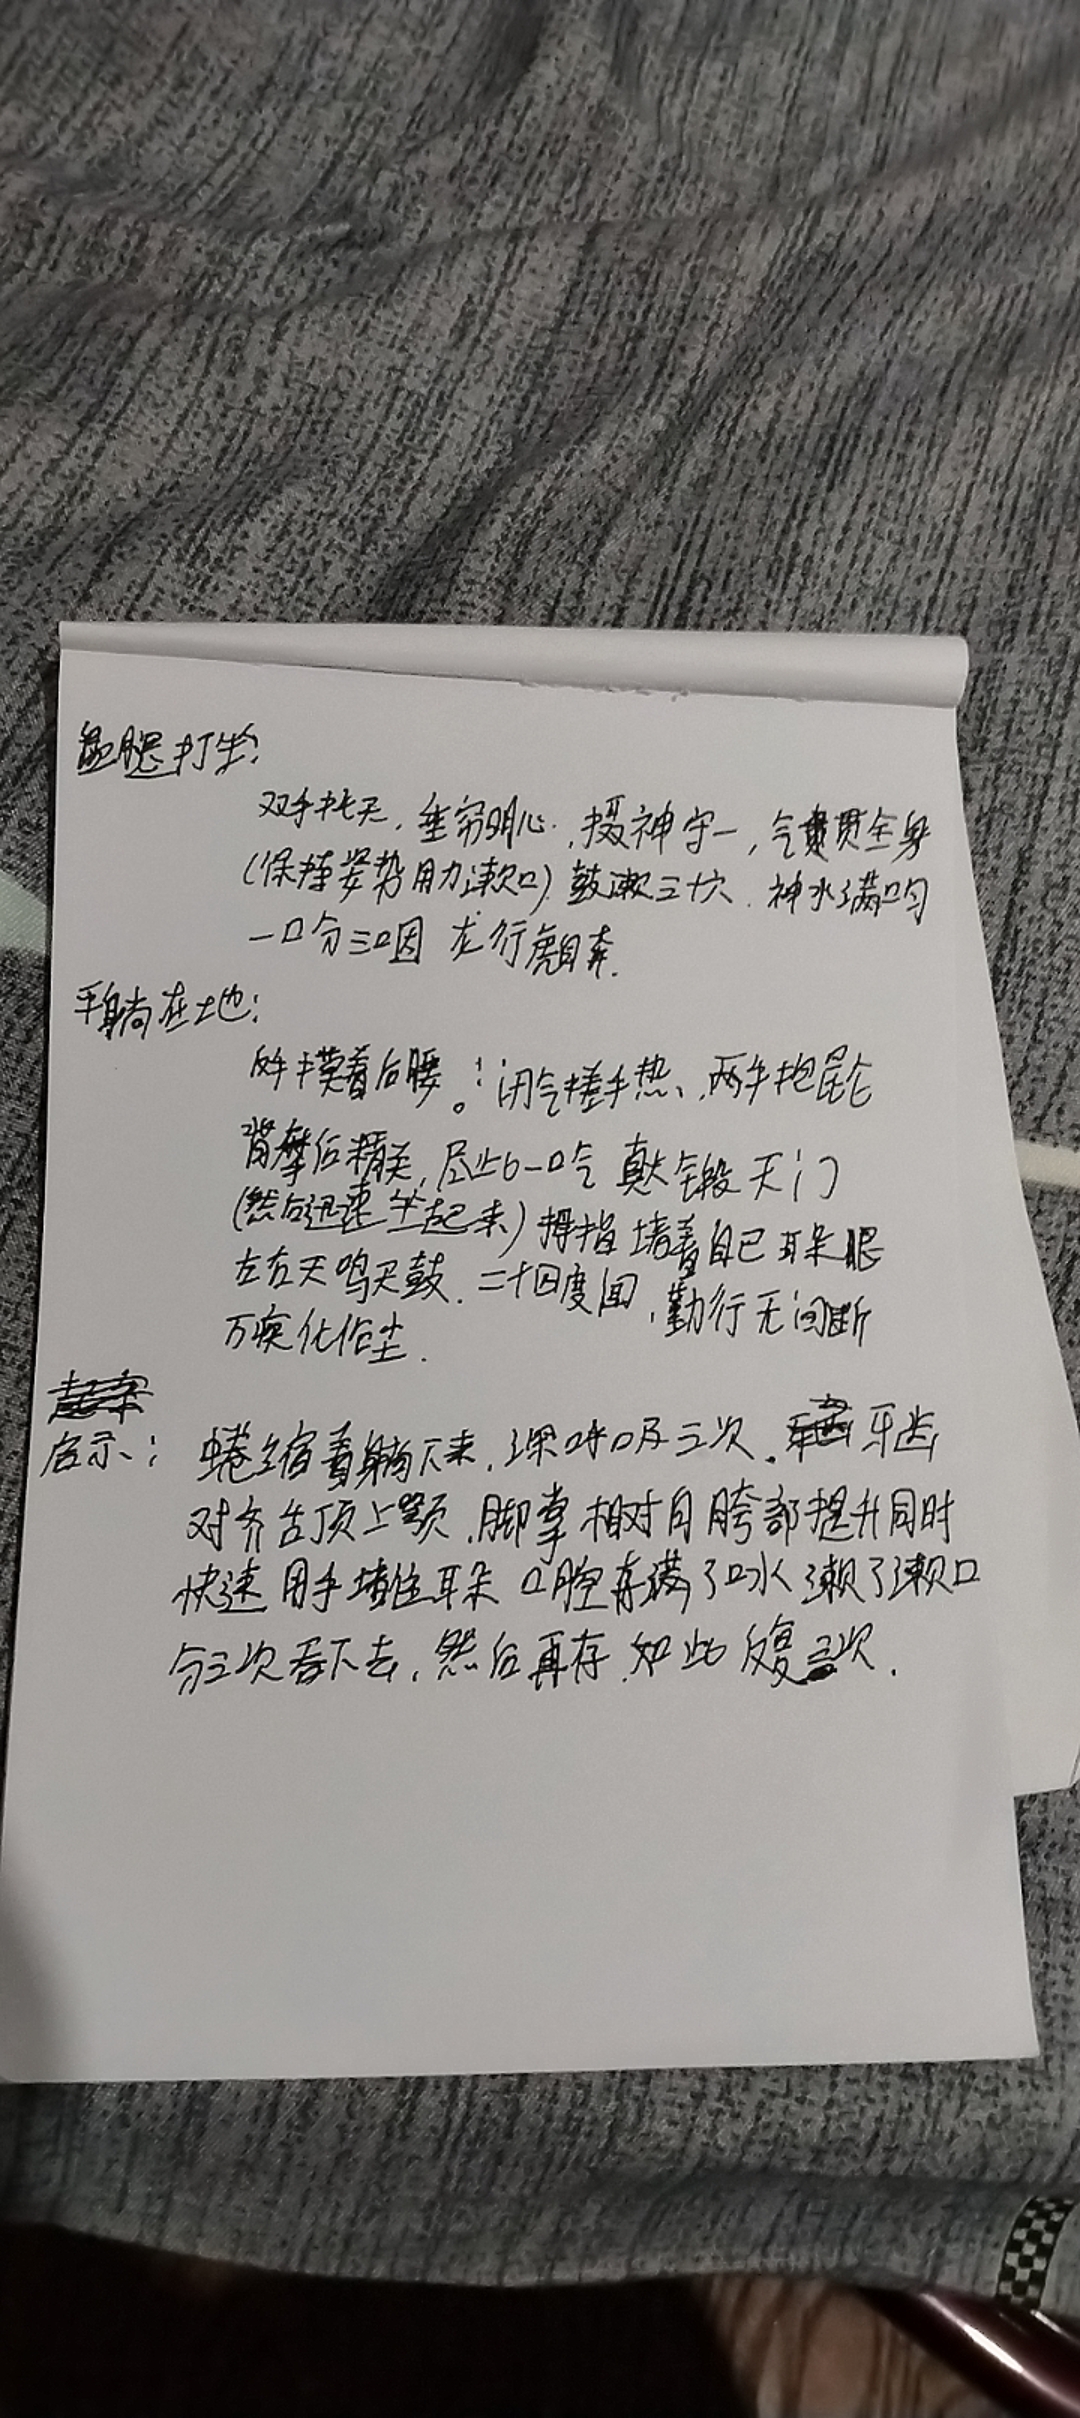 盘腿打坐:
双手托天,垂帘明心.,摄神守一,气贯全身
(保持姿势用力漱口)鼓漱三十六.神水满口匀
一口分三口因 龙行虎自奔.
平躺在地:
反手摸着后腰。:闭气搓手热、,两手抱昆仑
背摩后精关,尽此一口气 真火锻天门
(然后迅速坐起来)拇指堵着自己耳朵眼
左右天鸣天鼓.二十四度闻,勤行无间断
万疾化作尘.
启示:蜷缩着躺下来,深呼吸三次.牙齿
对齐舌顶上颚.脚掌相对自胯部提升同时
快速用手堵住耳朵 口腔存满了口水漱了漱口
分三次吞下去,然后再存.如此反复三次.